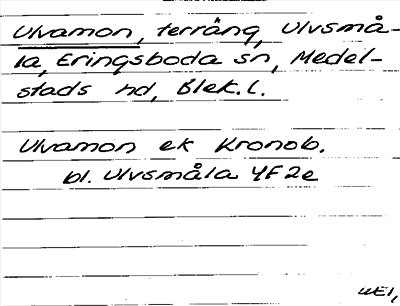 Ulvamon, terräng, Ulvsmå-
la, Eringsboda sn, Medel-
stads hd, Blek.l.
Ulvamon ek Kronob.
bl. Ulvsmåla 4F2e